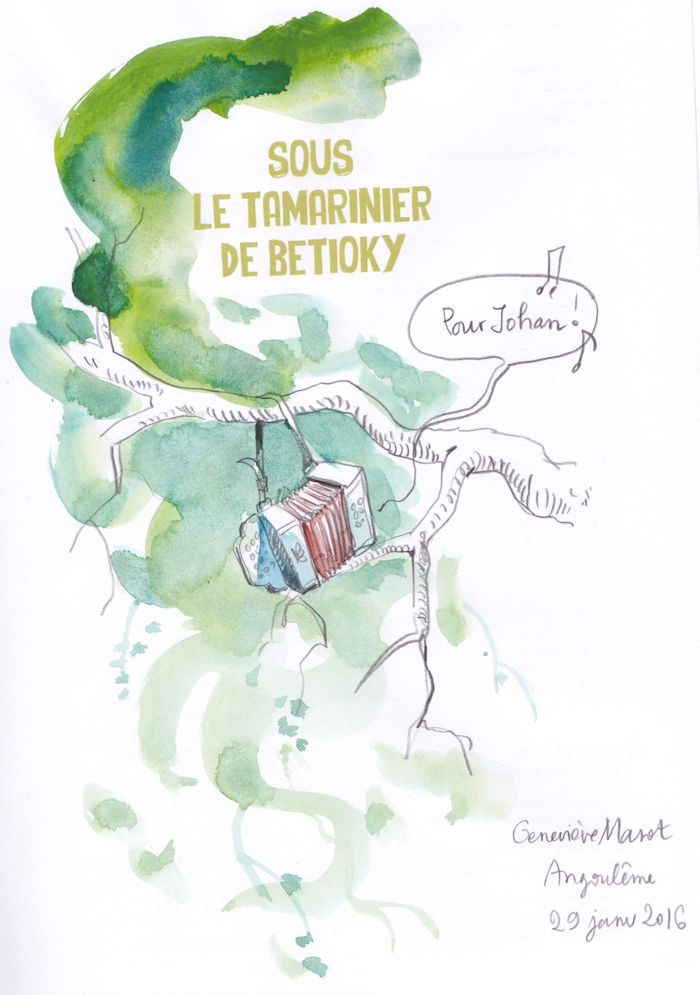 SOUS
LE TAMARINIER
DE BETIOKY
Pour Johan !
Geneviève Marot
Angoulême
29 janv 2016